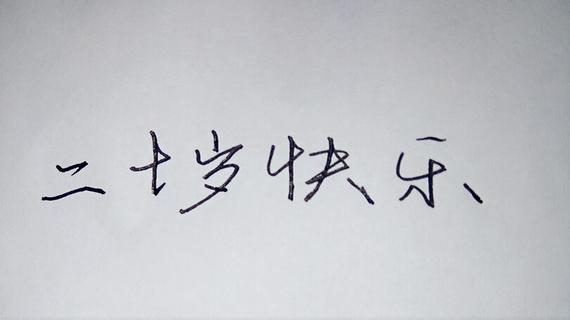 二十岁快乐